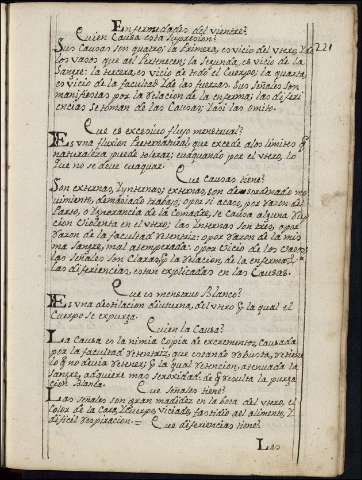 Enfermedades del vientre.
221
Quien Causa esta supression?
Sus Causas son quatro; la Primera, es vicio del utero, y de
los vasos que ael Pertenecen; la Segunda, es vicio de la
Sangre; la tercera, es vicio de todo el Cuerpo; la quarta,
es vicio de la facultad y de las fuerzas. Sus Señales son
manifiestas por la relacion de la enferma; las difer-
iencias se toman de las Causas; Las omito.
Que es excesivo flujo menstrual?
Es una fluxion Preternatural, que excede alos limites q
naturaleza puede tolerar; evaquando por el utero, lo
que no se deve evaquar.
Que Causas tiene?
Son externas, y internas; externas, son desordenado mo-
vimiento, demasiado trabajo, ope si acaso, por razon del
Parto, o Ignorancia de la Comadre, se causa alguna
cion violenta en el utero; las Internas son tres, o por
razon de la facultad retentriz; o por razon de la mis-
ma sangre, mal atemperada; o por vicio de los vasos
las Señales son Claras, q la relacion de la enferma; y
las diferiencias, estan explicados en las Causas.
Que es menstruo Blanco?
Es una destilacion diuturna, del utero q la qual el
Cuerpo se expurga.
Quien la Causa?
La Causa es la nimia Copia de excrementos, Causada
por la facultad retentriz, que estando robusta, retiene
lo q no devia retener; q la qual retencion, atenuada la
sangre, adquiere mas serosidad; de q resulta la purga-
cion Blanca.
Que Señales tiene?
Las señales son gran madidez en la boca del utero, el
Color de la Cara, y Cuerpo viciado, fastidio del alimento, y
dificil respiracion.=
Que diferiencias tiene?
Las